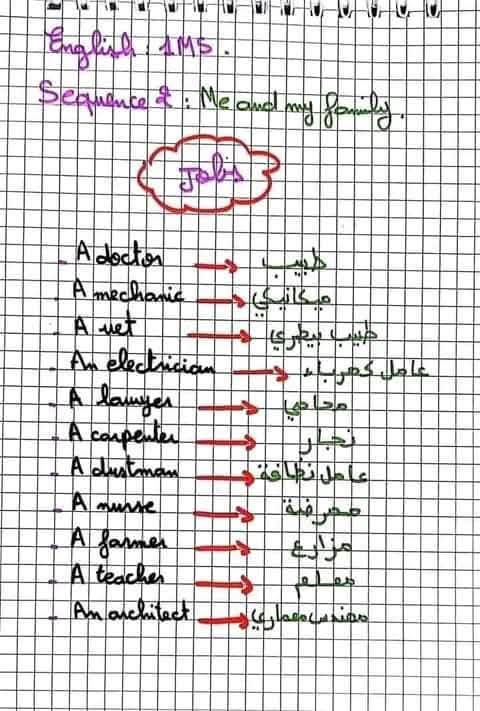 English : 1MS.
Sequence 2 : Me and my family.
Jobs
- A doctor → طبيب
- A mechanic → ميكانيكي
- A vet → طبيب بيطري
- An electrician → عامل كهرباء
- A lawyer → محامي
- A carpenter → نجار
- A dustman → عامل نظافة
- A nurse → ممرضة
- A farmer → مزارع
- A teacher → معلم
- An architect → مهندس معماري